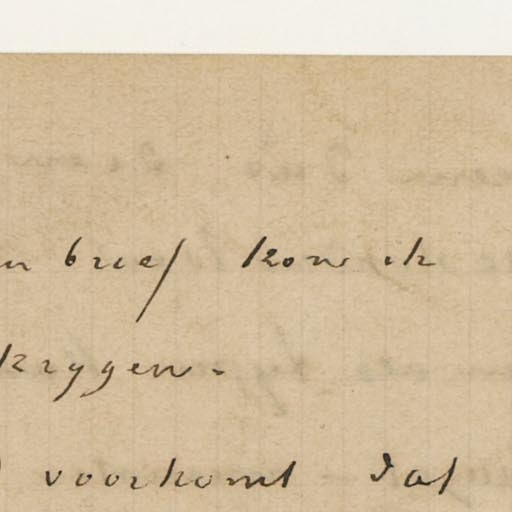 brief kon ik
krygen.
voorkomt dat